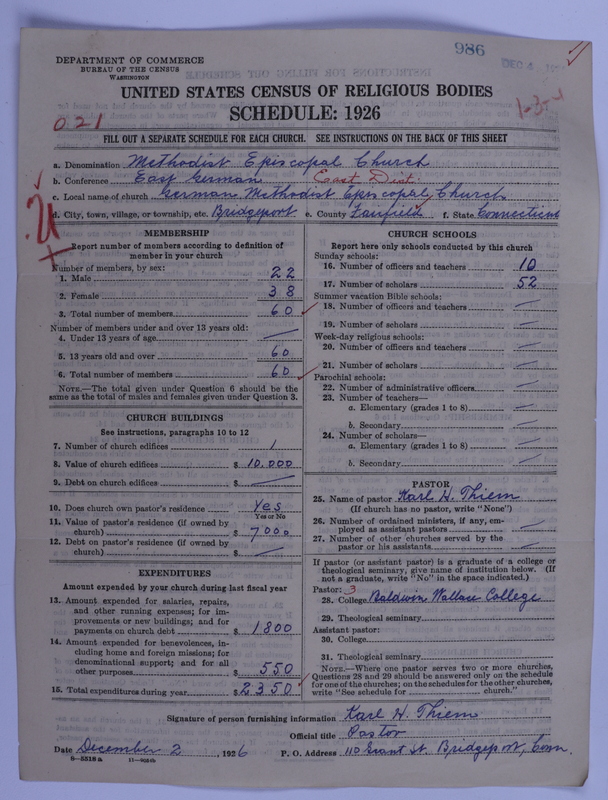 986
DEC 4
DEPARTMENT OF COMMERCE
BUREAU OF THE CENSUS
WASHINGTON
UNITED STATES CENSUS OF RELIGIOUS BODIES
SCHEDULE: 1926
1-3-4
021
FILL OUT A SEPARATE SCHEDULE FOR EACH CHURCH. SEE INSTRUCTIONS ON THE BACK OF THIS SHEET
a. Denomination Methodist Episcopal Church
b. Conference East German East Dist.
c. Local name of church German Methodist Episcopal Church
d. City, town, village, or township, etc. Bridgeport e. County Fairfield f. State Connecticut
MEMBERSHIP
Report number of members according to definition of
member in your church
Number of members, by sex:
1. Male 22
2. Female 38
3. Total number of members 60
Number of members under and over 13 years old:
4. Under 13 years of age —
5. 13 years old and over 60
6. Total number of members 60
NOTE.—The total given under Question 6 should be the
same as the total of males and females given under Question 3.
CHURCH BUILDINGS
See instructions, paragraphs 10 to 12
7. Number of church edifices 1
8. Value of church edifices $ 10.000
9. Debt on church edifices $ —
10. Does church own pastor's residence Yes
Yes or No
11. Value of pastor's residence (if owned by
church) $ 7000
12. Debt on pastor's residence (if owned by
church) $ —
EXPENDITURES
Amount expended by your church during last fiscal year
13. Amount expended for salaries, repairs,
and other running expenses; for im-
provements or new buildings; and for
payments on church debt $ 1800
14. Amount expended for benevolences, in-
cluding home and foreign missions; for
denominational support; and for all
other purposes $ 550
15. Total expenditures during year $ 2350
CHURCH SCHOOLS
Report here only schools conducted by this church
Sunday schools:
16. Number of officers and teachers 10
17. Number of scholars 52
Summer vacation Bible schools:
18. Number of officers and teachers —
19. Number of scholars —
Week-day religious schools:
20. Number of officers and teachers —
21. Number of scholars —
Parochial schools:
22. Number of administrative officers —
23. Number of teachers—
a. Elementary (grades 1 to 8) —
b. Secondary —
24. Number of scholars—
a. Elementary (grades 1 to 8) —
b. Secondary —
PASTOR
25. Name of pastor Karl H. Thiem
(If church has no pastor, write "None")
26. Number of ordained ministers, if any, em-
ployed as assistant pastors —
27. Number of other churches served by the
pastor or his assistants —
If pastor (or assistant pastor) is a graduate of a college or
theological seminary, give name of institution below. (If
not a graduate, write "No" in the space indicated.)
Pastor: 3
28. College Baldwin Wallace College
29. Theological seminary
Assistant pastor:
30. College
31. Theological seminary
NOTE.—Where one pastor serves two or more churches,
Questions 28 and 29 should be answered only on the schedule
for one of the churches; on the schedules for the other churches,
write "See schedule for church."
Signature of person furnishing information Karl H. Thiem
Official title Pastor
Date December 2, 1926 P. O. Address 110 Grant St. Bridgeport, Conn.
8-5518 a 11-9054b